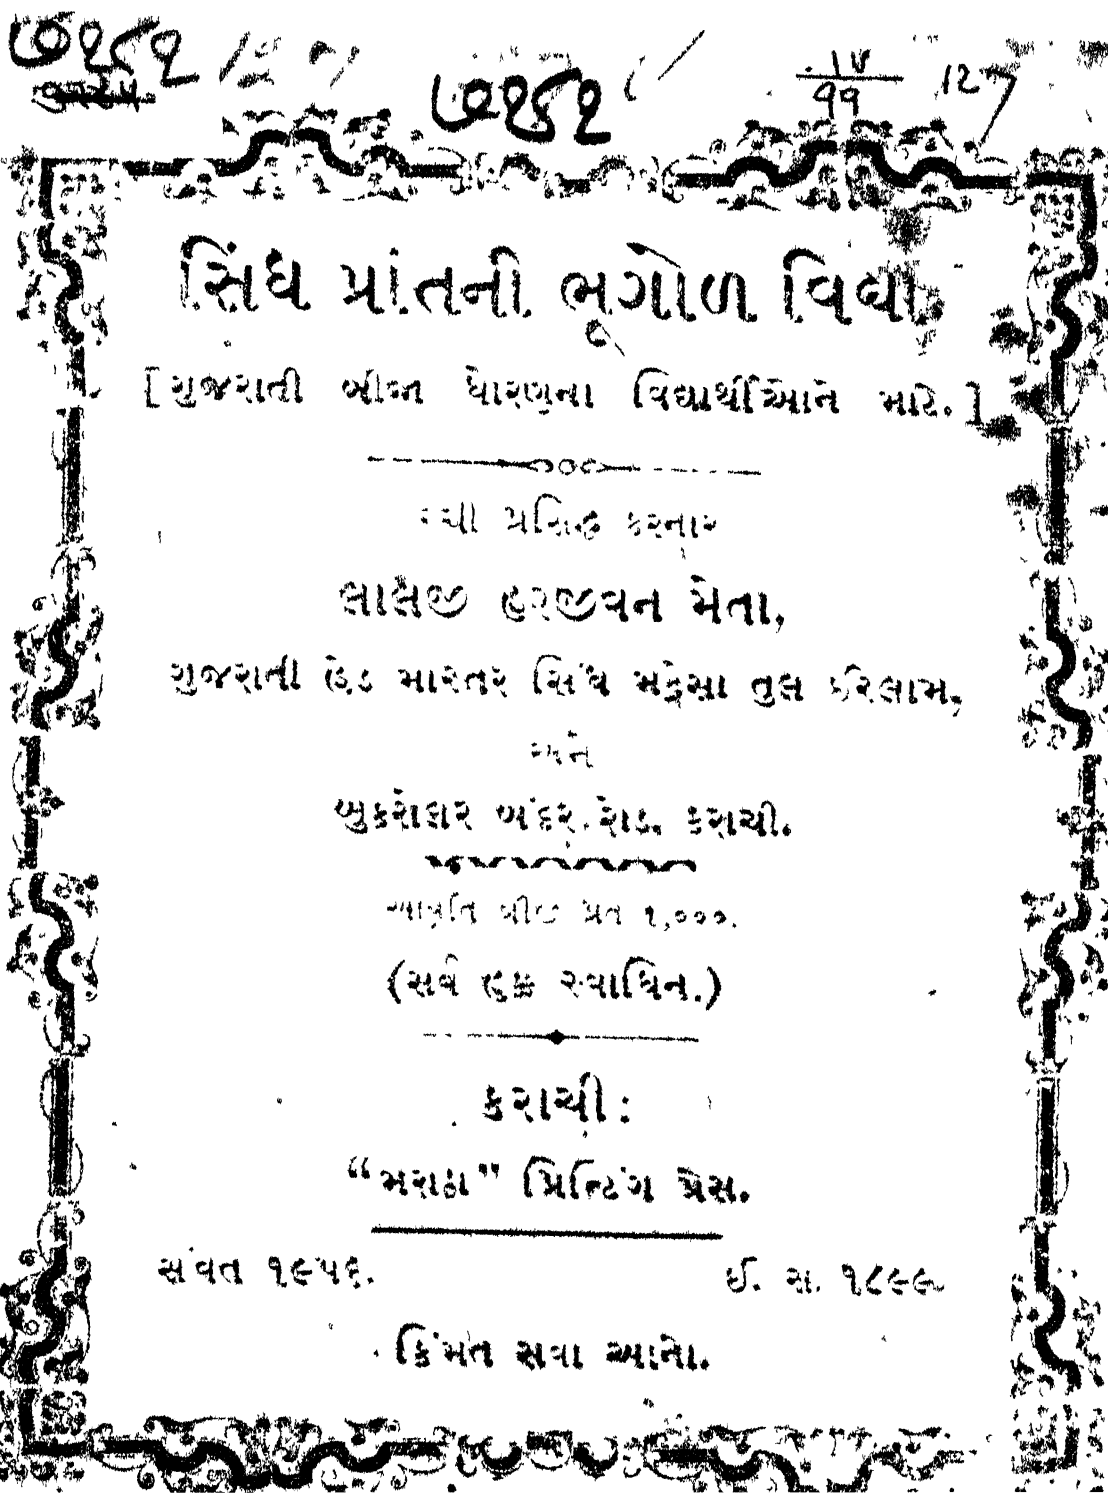 ૭૧૮૧
૭૧૮૧
૧૪
૧૧
127
સિંધ પ્રાંતની ભૂગોળ વિદ્યા
[ગુજરાતી બીજા ધોરણના વિદ્યાર્થીઓને માટે.]
રચી પ્રસિદ્ધ કરનાર
લાલજી હરજીવન મેતા,
ગુજરાતી હેડ માસ્તર સિંધ મદ્રેસા તુલ ઈસ્લામ,
અને
બુકસેલર બંદર રોડ, કરાચી.
આવૃત્તિ બીજી પ્રત ૧,૦૦૦.
(સર્વ હક્ક સ્વાધિન.)
કરાચી:
"મરાઠા" પ્રિન્ટિંગ પ્રેસ.
સંવત ૧૯૫૬. ઈ. સ. ૧૮૯૯.
કિંમત સવા આનો.